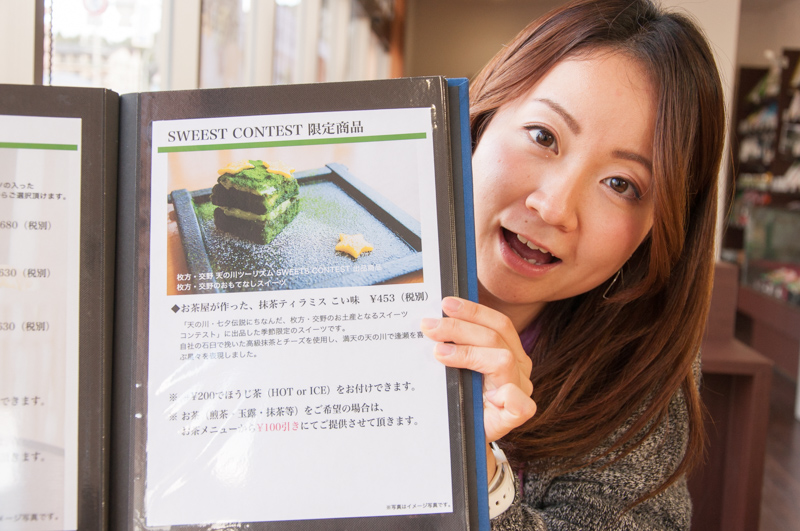 の入った
らご選択頂けます。
680（税別）
630（税別）
630（税別）
できます。
きます。
ージ写真です。
SWEEST CONTEST 限定商品
枚方・交野 天の川ツーリズム SWEETS CONTEST 出品商品
枚方・交野のおもてなしスイーツ
◆お茶屋が作った、抹茶ティラミス こい味 ¥453（税別）
「天の川・七夕伝説にちなんだ、枚方・交野のお土産となるスイーツ
コンテスト」に出品した季節限定のスイーツです。
自社の石臼で挽いた高級抹茶とチーズを使用し、満天の天の川で逢瀬を喜
ぶ星々を表現しました。
※ +¥200でほうじ茶（HOT or ICE）をお付けできます。
※ お茶（煎茶・玉露・抹茶等）をご希望の場合は、
お茶メニューから¥100引きにてご提供させて頂きます。
※写真はイメージ写真です。